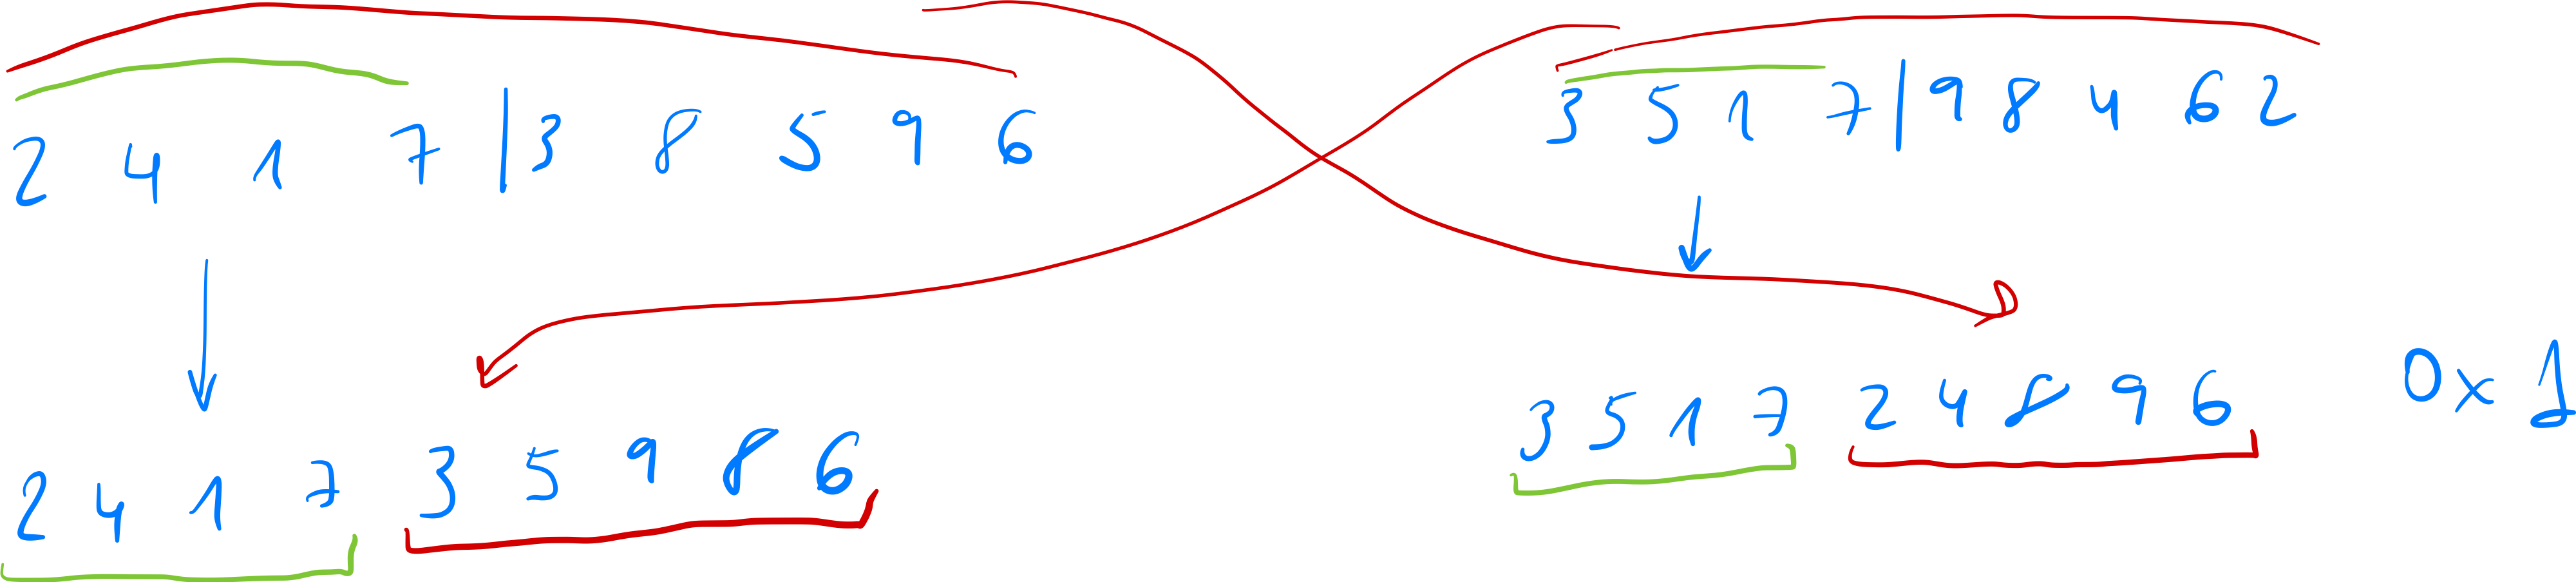 2 4 1 7 | 3 8 5 9 6 3 5 1 7 | 9 8 4 6 2
2 4 1 7 3 5 9 8 6 3 5 1 7 2 4 8 9 6 0x1